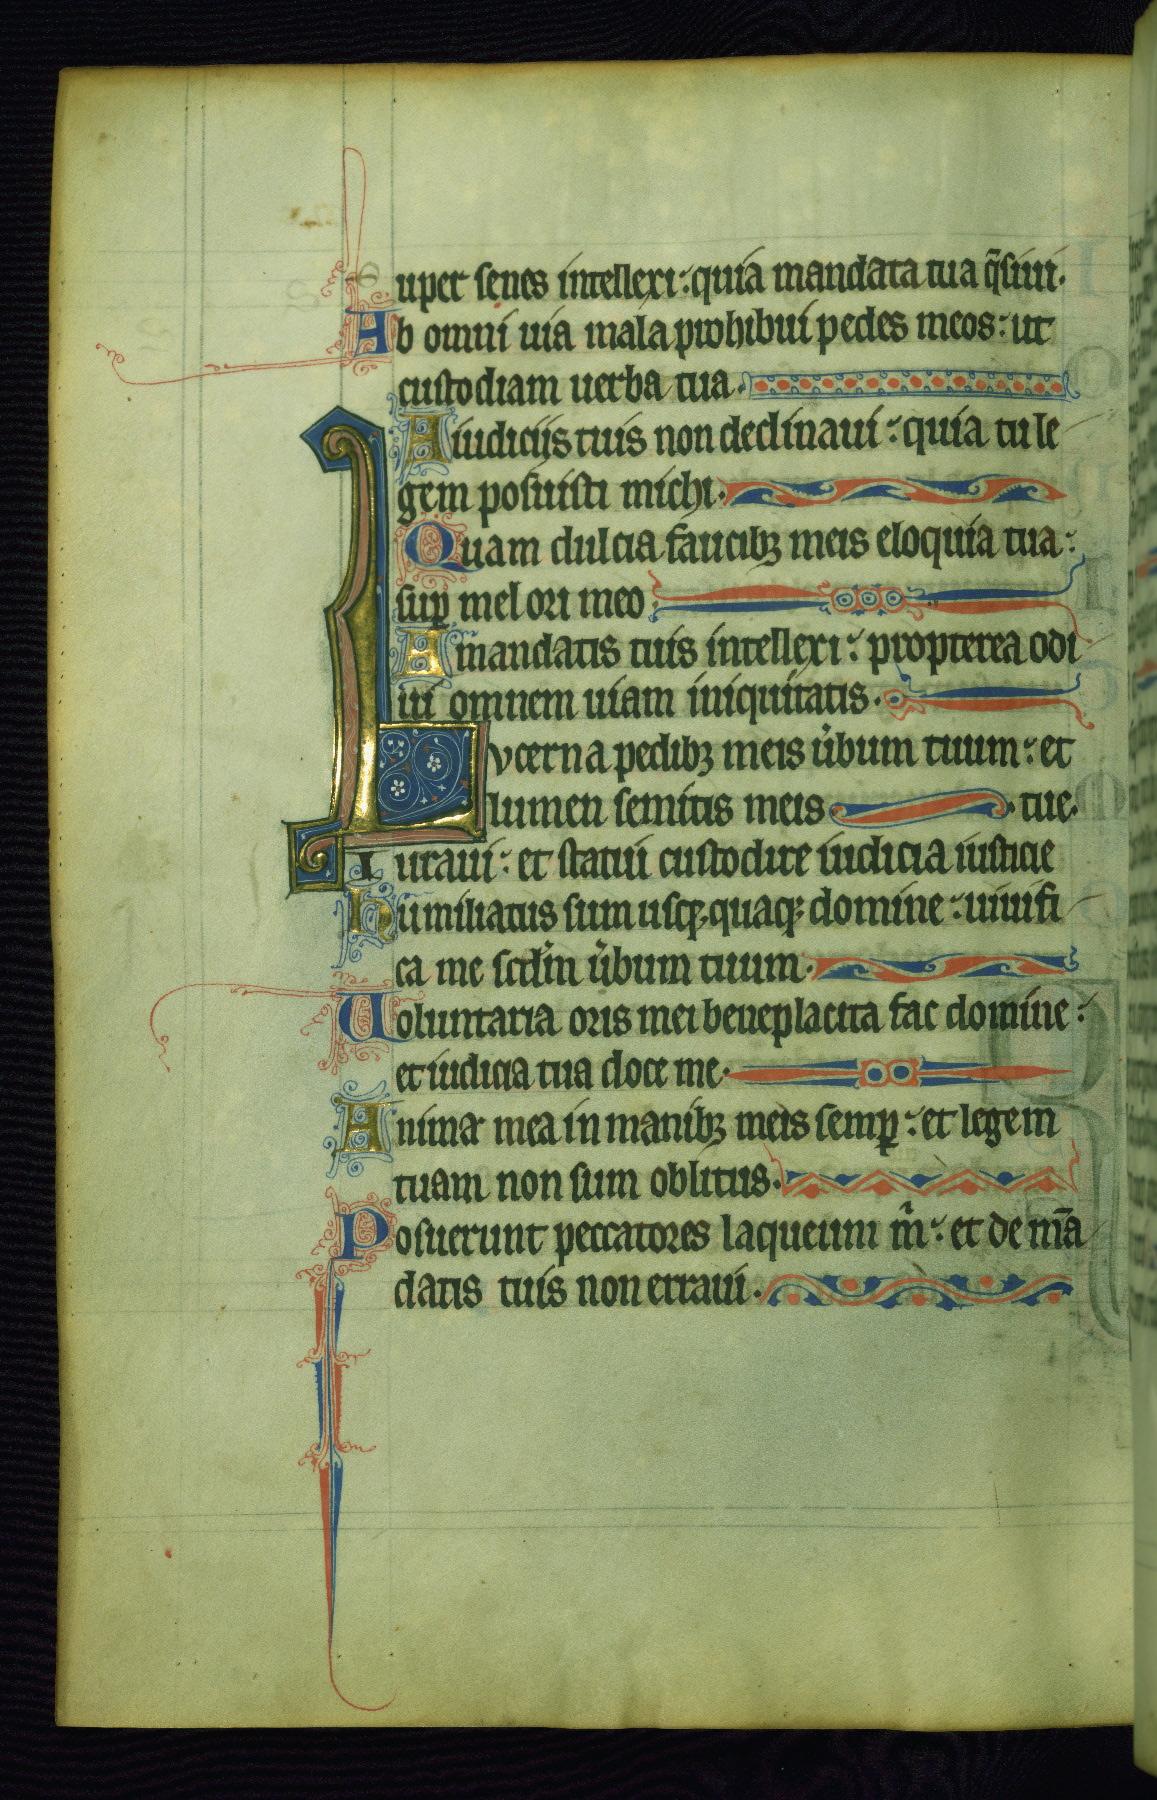 Super senes intellexi: quia mandata tua q̄siui.
Ab omni uia mala prohibui pedes meos: ut
custodiam uerba tua.
A iudicijs tuis non declinaui: quia tu le
gem posuisti michi.
Quam dulcia faucibꝫ meis eloquia tua:
suꝑ mel ori meo.
A mandatis tuis intellexi: propterea odi
ui omnem uiam iniquitatis.
Lvcerna pedibꝫ meis u̍bum tuum: et
lumen semitis meis tue.
Iuraui: et statui custodire iudicia iusticie
Humiliatus sum usqꝫ quaqꝫ domine: uiuifi
ca me scd̍m u̍bum tuum.
Uoluntaria oris mei beneplacita fac domine:
et iudicia tua doce me.
Anima mea in manibꝫ meis semꝑ: et legem
tuam non sum oblitus.
Posuerunt peccatores laqueum m̍: et de mā
datis tuis non erraui.